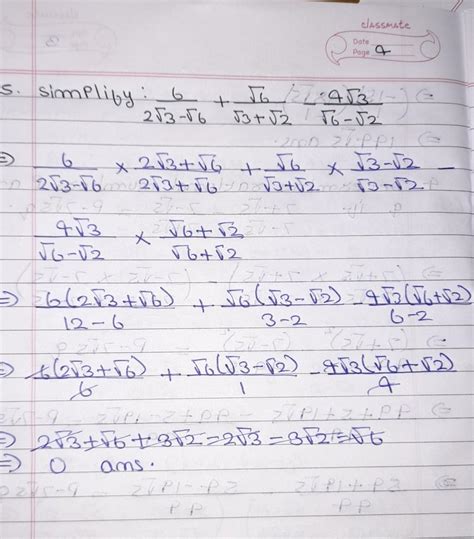 classmate
Date
Page 4
5. simplify: 6/(2√3-√6) + √6/(√3+√2) - 4√3/(√6-√2)
⇒ 6/(2√3-√6) × (2√3+√6)/(2√3+√6) + √6/(√3+√2) × (√3-√2)/(√3-√2) -
4√3/(√6-√2) × (√6+√2)/(√6+√2)
⇒ 6(2√3+√6)/(12-6) + √6(√3-√2)/(3-2) - 4√3(√6+√2)/(6-2)
⇒ 6(2√3+√6)/6 + √6(√3-√2)/1 - 4√3(√6+√2)/4
⇒ 2√3+√6+3√2-2√3-3√2-√6
⇒ 0 ans.